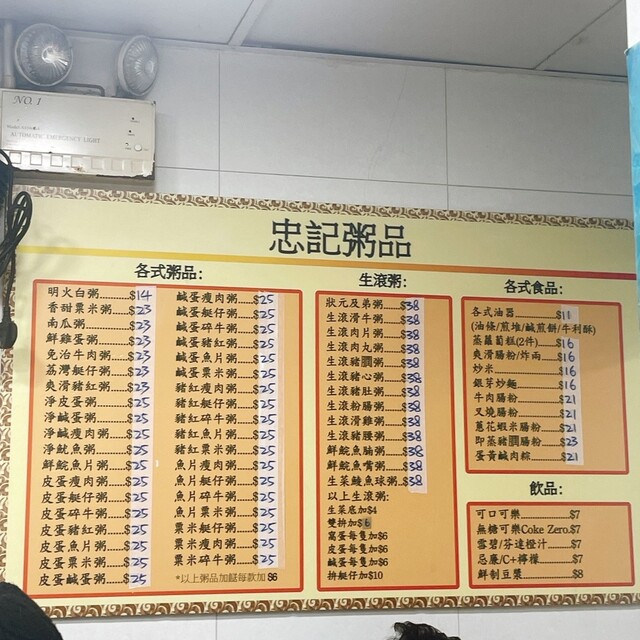 NO. 1
AUTOMATIC EMERGENCY LIGHT
忠記粥品
各式粥品:
明火白粥.........$14
香甜粟米粥....$23
南瓜粥............$23
鮮雞蛋粥........$23
免治牛肉粥....$23
荔灣艇仔粥....$23
爽滑豬紅粥....$23
淨皮蛋粥........$25
淨鹹蛋粥........$25
淨鹹瘦肉粥....$25
淨魷魚粥........$25
鮮鯇魚片粥....$25
皮蛋瘦肉粥....$25
皮蛋艇仔粥....$25
皮蛋碎牛粥....$25
皮蛋豬紅粥....$25
皮蛋魚片粥....$25
皮蛋粟米粥....$25
皮蛋鹹蛋粥....$25
鹹蛋瘦肉粥....$25
鹹蛋艇仔粥....$25
鹹蛋碎牛粥....$25
鹹蛋豬紅粥....$25
鹹蛋魚片粥....$25
鹹蛋粟米粥....$25
豬紅瘦肉粥....$25
豬紅艇仔粥....$25
豬紅碎牛粥....$25
豬紅魚片粥....$25
豬紅粟米粥....$25
魚片瘦肉粥....$25
魚片艇仔粥....$25
魚片碎牛粥....$25
魚片粟米粥....$25
粟米艇仔粥....$25
粟米瘦肉粥....$25
粟米碎牛粥....$25
*以上粥品加餸每款加 $6
生滾粥:
狀元及弟粥....$38
生滾滑牛粥....$38
生滾肉片粥....$38
生滾肉丸粥....$38
生滾豬膶粥....$38
生滾豬心粥....$38
生滾豬肚粥....$38
生滾粉腸粥....$38
生滾滑雞粥....$38
生滾豬腰粥....$38
鮮鯇魚腩粥....$38
鮮鯇魚嘴粥....$38
生菜鯪魚球粥..$38
以上生滾粥:
生菜底加$4
雙拚加$6
窩蛋每隻加$6
皮蛋每隻加$6
鹹蛋每隻加$6
拚艇仔加$10
各式食品:
各式油器.............$11
(油條/煎堆/鹹煎餅/牛利酥)
蒸蘿蔔糕(2件)....$16
爽滑腸粉/炸兩....$16
炒米....................$16
銀芽炒麵............$16
牛肉腸粉............$21
叉燒腸粉............$21
蔥花蝦米腸粉....$21
即蒸豬膶腸粉....$23
蛋黃鹹肉粽........$21
飲品:
可口可樂..............$7
無糖可樂Coke Zero.$7
雪碧/芬達橙汁......$7
忌廉/C+檸檬........$7
鮮制豆漿..............$8